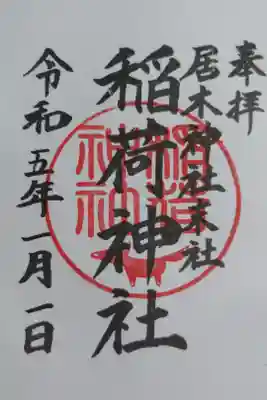 奉拝
居木神社末社
稲荷神社
令和五年一月一日